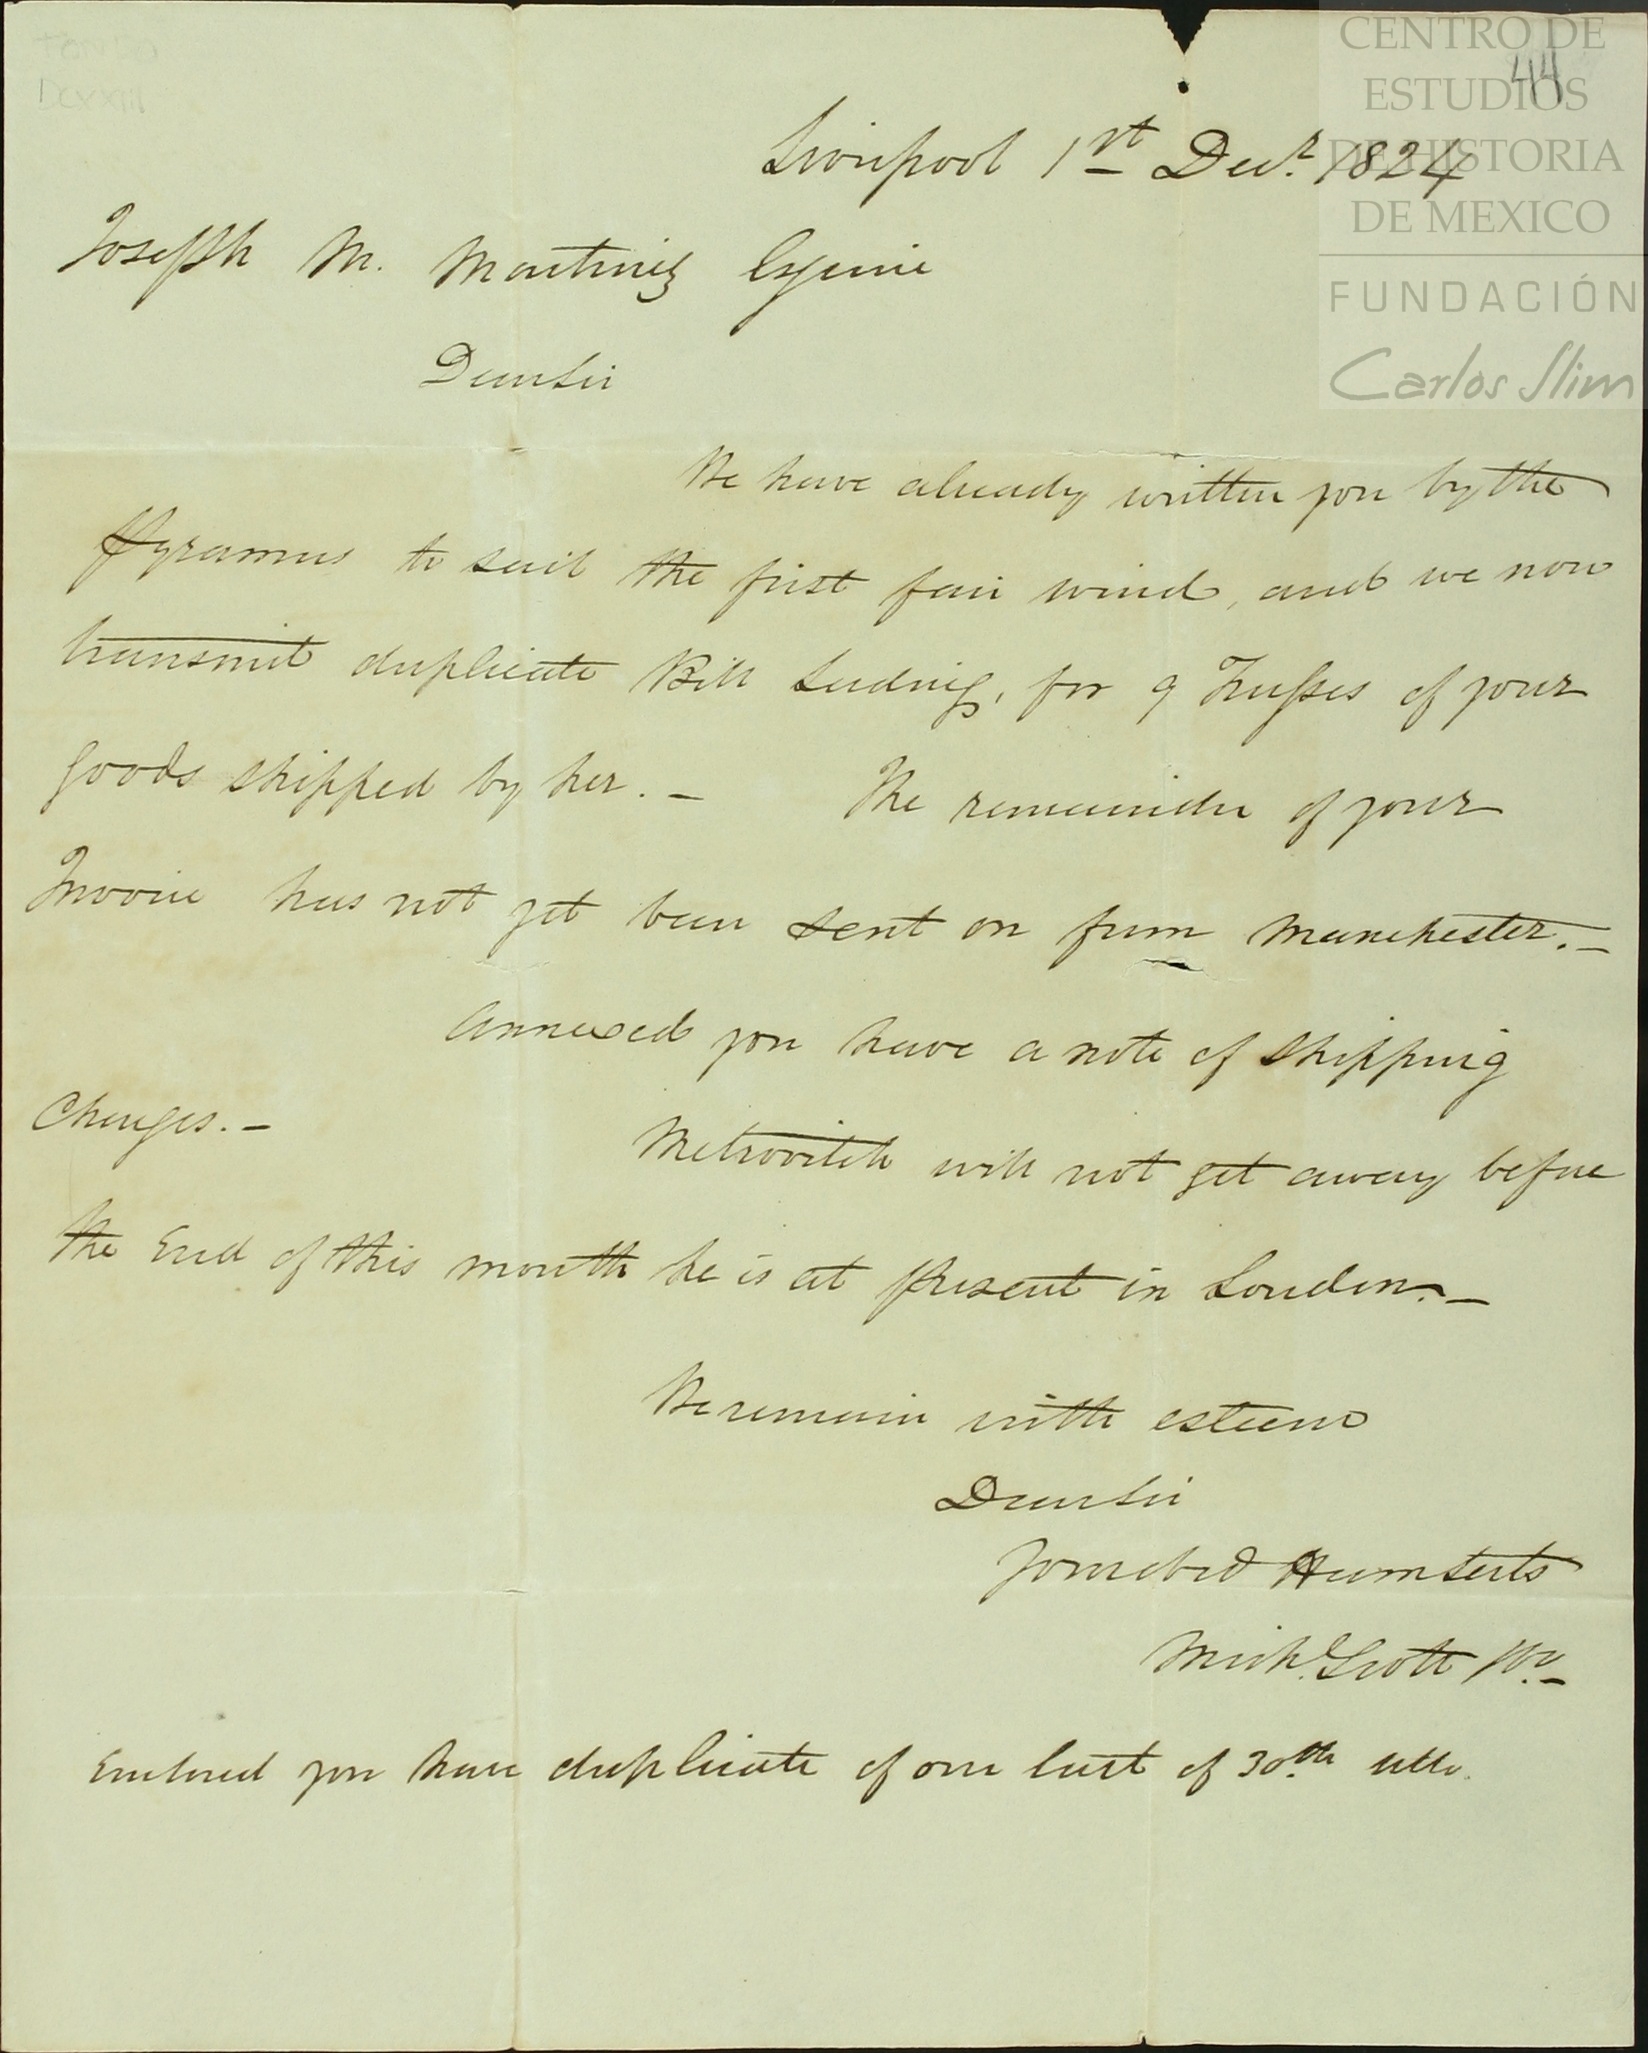 CENTRO DE
ESTUDIOS
DE HISTORIA
DE MEXICO
FUNDACIÓN
Carlos Slim
414
TOMO
DCXXIII
Liverpool 1st Decr. 1824
Joseph M. Martinez Esquire
Dear Sir
We have already written you by the
Pyramus to sail the first fair wind, and we now
transmit duplicate Bill Lading, for 9 Trusses of your
goods shipped by her. — The remainder of your
Invoice has not yet been sent on from Manchester. —
Annexed you have a note of shipping
Charges. — Metrovitch will not get away before
the End of this month he is at present in London. —
We remain with esteem
Dear Sir
Your obed Humb Serts
Michl. Scott &Co. —
Enclosed you have duplicate of our last of 30th. ulto.